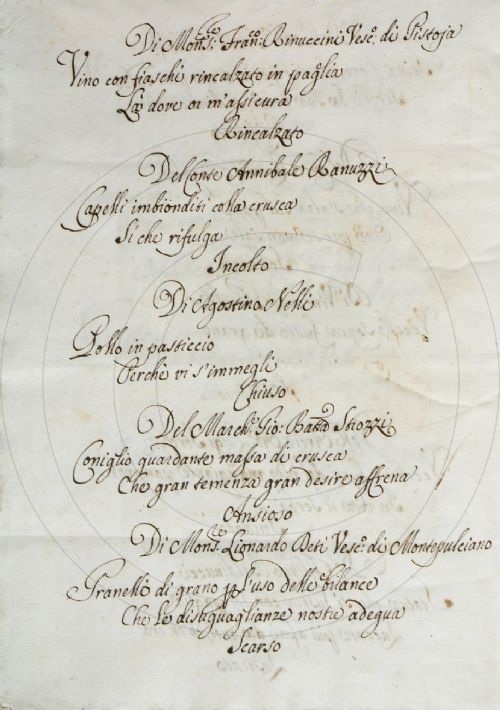 Di Mons:re Fran:co Rinuccini Vesc:o di Pistoja
Vino con fiaschi rincalzato in paglia
Là dove oi m'assicura
Rincalzato
Del Conte Annibale Ranuzzi
Capelli imbionditi colla crusca
Si che rifulga
Incolto
Di Agostino Nelli
Pollo in pasticcio
Perchè vi s'immegli
Chiuso
Del March:e Gio: Batta Strozzi
Coniglio guardante massa di crusca
Che gran temenza gran desire affrena
Ansioso
Di Mons:re Lionardo Deti Vesc:o di Montepulciano
Granello di grano p l'uso delle bilance
Che le disaguaglianze nostre adegua
Scarso